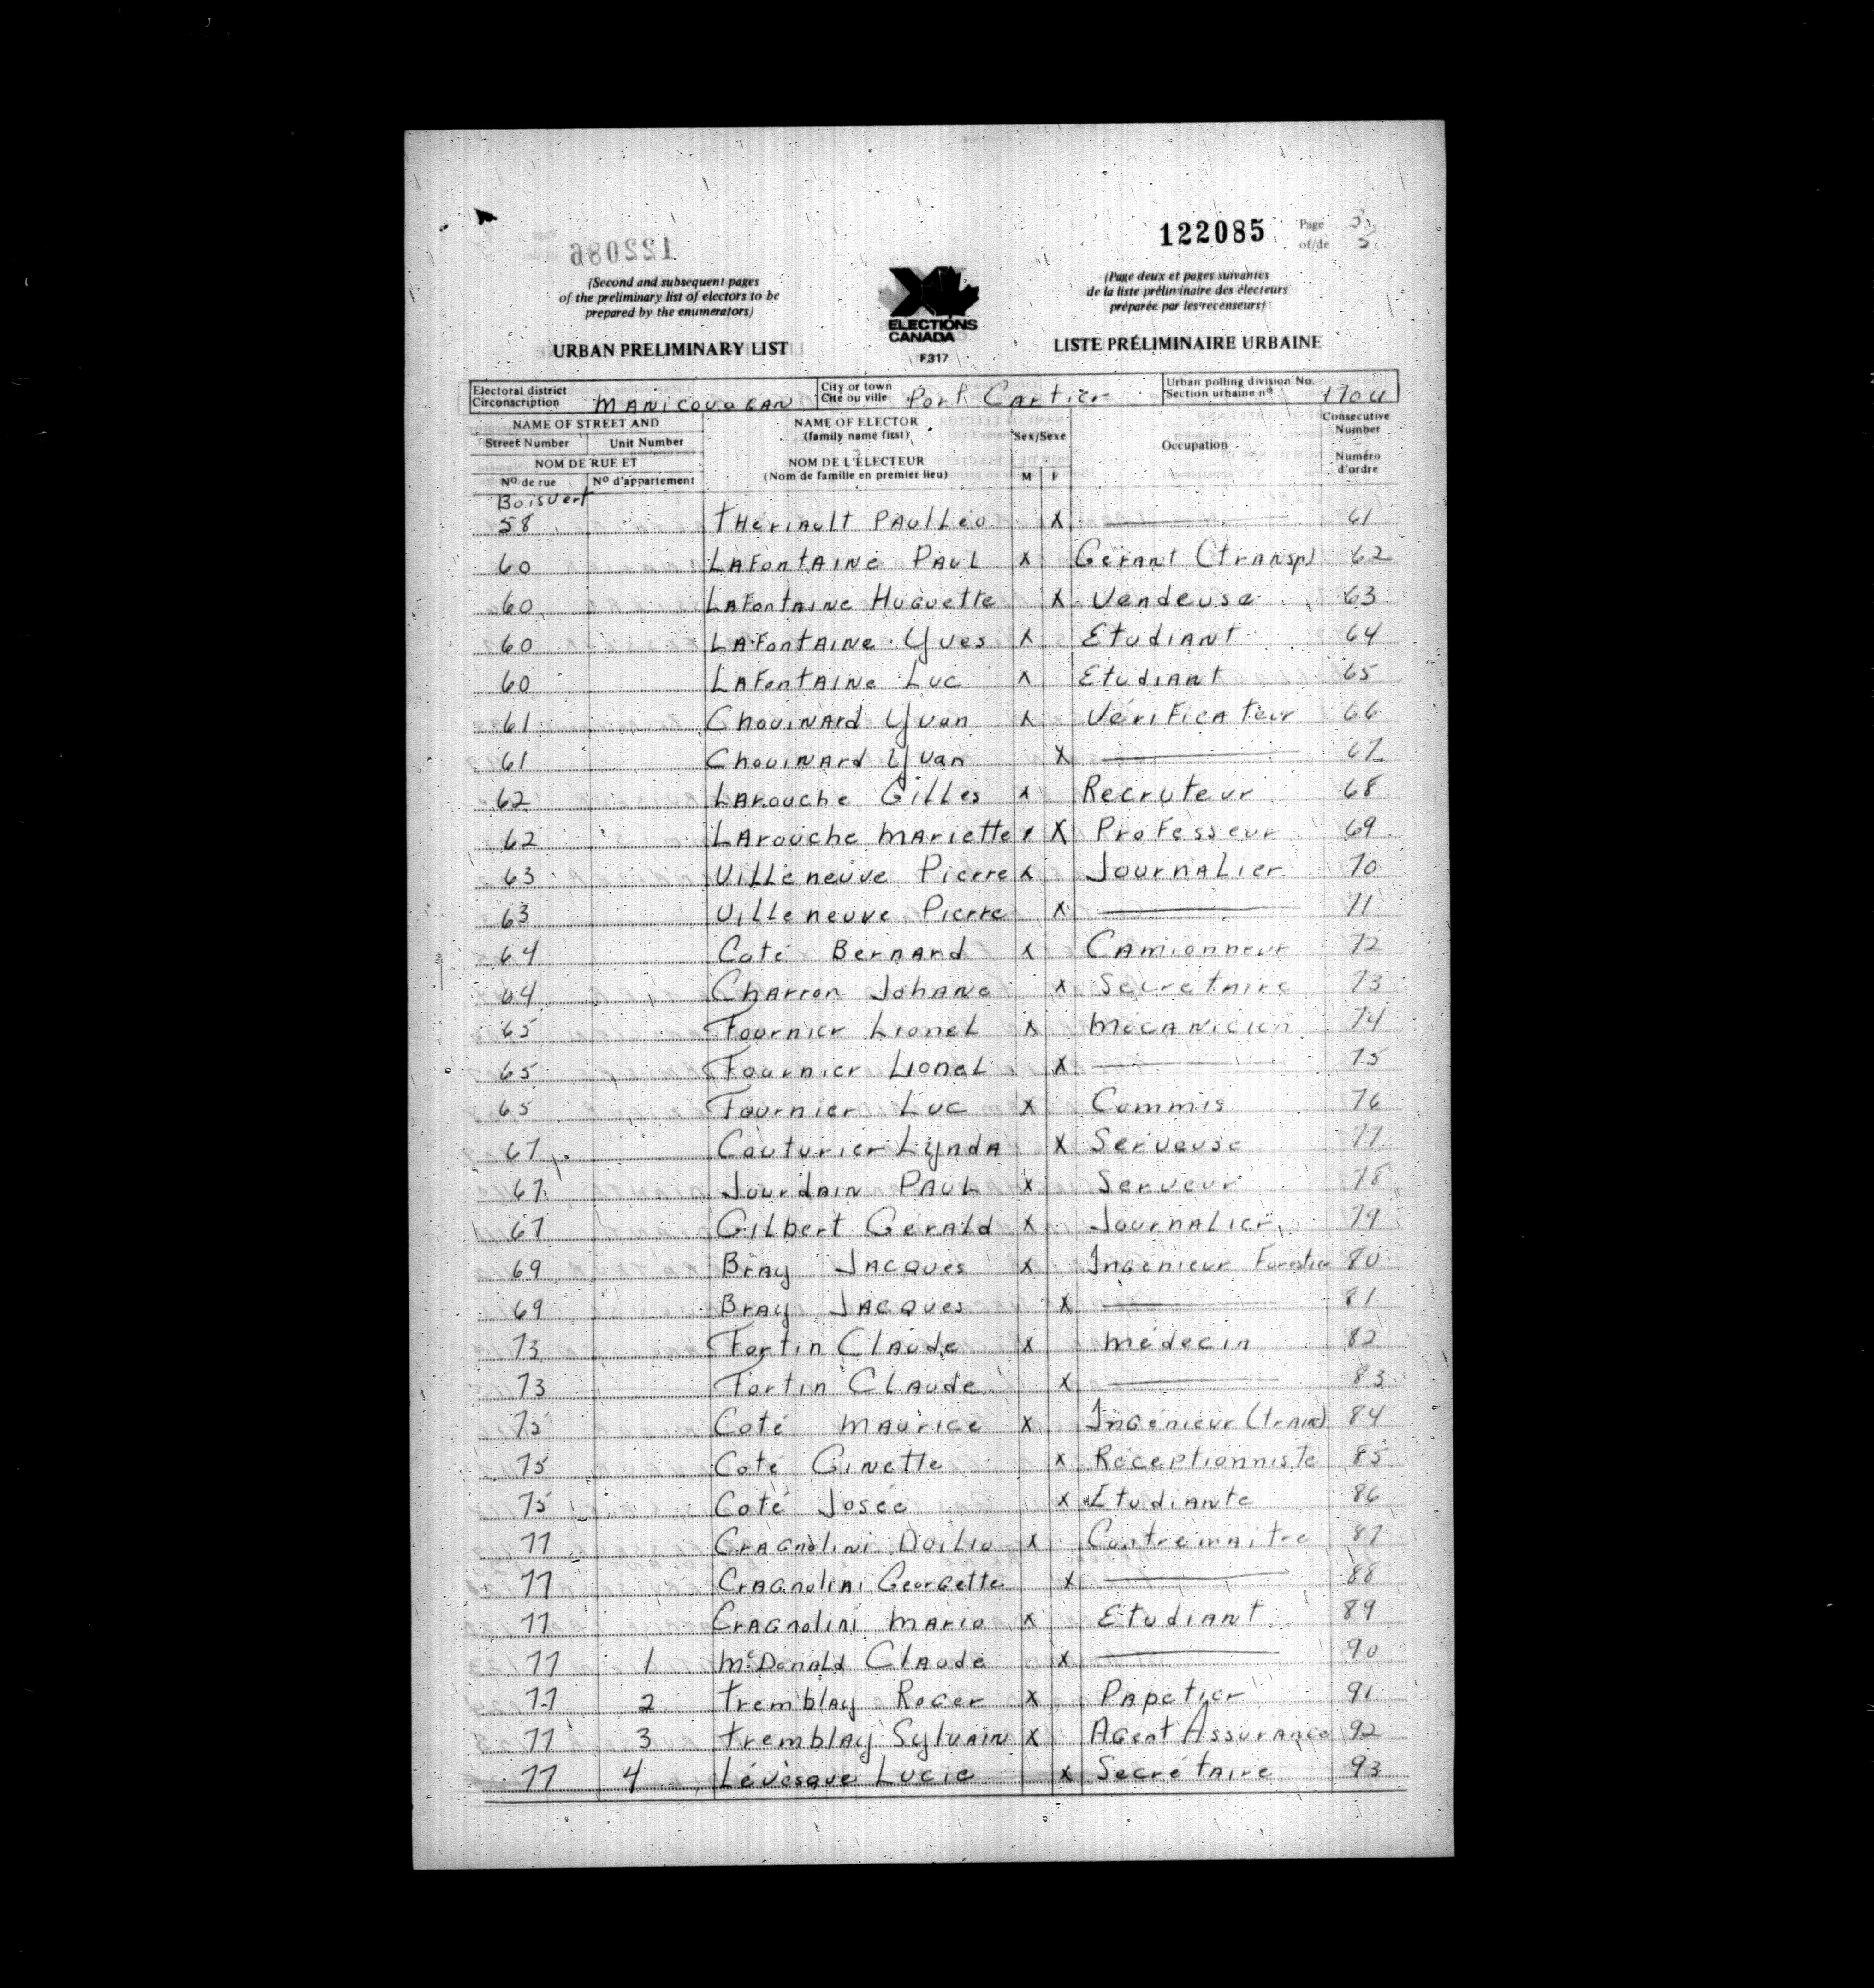 122085
Page 3
of/de 5
(Second and subsequent pages
of the preliminary list of electors to be
prepared by the enumerators)
URBAN PRELIMINARY LIST
ELECTIONS
CANADA
F317
(Page deux et pages suivantes
de la liste préliminaire des électeurs
préparée par les recenseurs)
LISTE PRÉLIMINAIRE URBAINE
Electoral district
Circonscription MANICOUAGAN
City or town
Cité ou ville Port Cartier
Urban polling division No.
Section urbaine nº
NAME OF STREET AND
Street Number Unit Number
NOM DE RUE ET
Nº de rue Nº d'appartement
NAME OF ELECTOR
(family name first)
NOM DE L'ÉLECTEUR
(Nom de famille en premier lieu)
Sex/Sexe
M F
Occupation
Consecutive
Number
Numéro
d'ordre
Boisvert
58 tHeriault PAulLéo X 61
60 LAFontAINe PAUL X Gerant (transp) 62
60 LAFontAINe HuGuette X Vendeuse 63
60 LAFontAINe Yves X EtudiANt 64
60 LAFontAINe Luc X EtudiANt 65
61 ChouiNArd Yvan X VériFicAteur 66
61 ChouiNArd Yvan X 67
62 LArouche GiLLes X Recruteur 68
62 LArouche MAriette x X ProFesseur 69
63 ViLLeneuve Pierre X JourNALier 70
63 Villeneuve Pierre X 71
64 Coté BerNArd X CAmionneur 72
64 ChArron JohANe X SecretAire 73
65 Fournier LioneL X MécANicien 74
65 Fournier LioneL X 75
65 Fournier Luc X Commis 76
67 Couturier LyndA X Serveuse 77
67 JourdAIN PAUL X Serveur 78
67 GiLbert GerAld X JourNALier 79
69 BrAy JAcques X InGénieur Forestier 80
69 BrAy JAcques X 81
73 Fortin ClAude X Médecin 82
73 Fortin CLAude X 83
75 Coté MAurice X InGénieur (train) 84
75 Coté GiNette X Réceptionniste 85
75 Coté Josée X EtudiANte 86
77 CrAGnolini Doilio X Contremaitre 87
77 CrAGnoliNi GeorGette X 88
77 CrAGnoliNi Mario X EtudiANt 89
77 1 McDonAld ClAude X 90
77 2 tremblAy RoGer X PApetier 91
77 3 tremblAy SylvAiN X AGent AssurANce 92
77 4 Lévèsque Lucie X SecrétAire 93